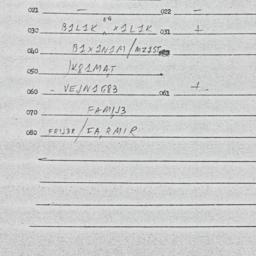 021 — 022 —
030 B1L1K, X1L1K 031 +
040 B1X1N1M/M21ST
050 )K81MAT
060 - VEJN1G83 061 +
070 FAMJJ3
080 FRIJ3R/FA,RMIR